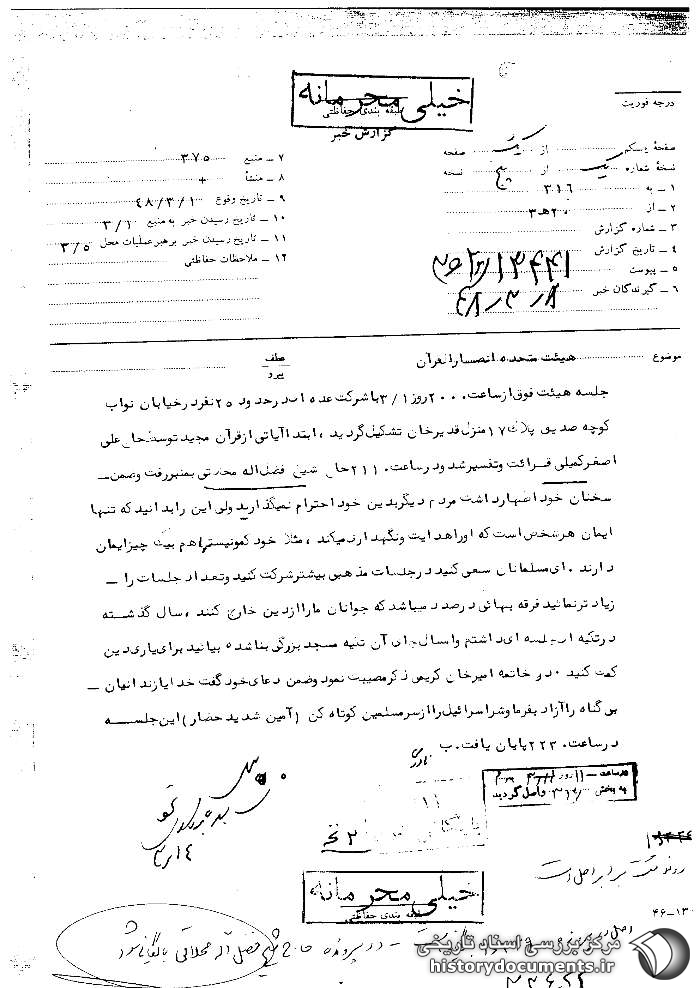 خیلی محرمانه
طبقه بندی حفاظتی
گزارش خبر
درجه فوریت
صفحه یکم از یک صفحه
نسخهٔ شماره یک از پنج نسخه
۱ ـ به ۳۱۶
۲ ـ از ۲۰ هـ ۳
۳ ـ شماره گزارش
۴ ـ تاریخ گزارش
۵ ـ پیوست
۶ ـ گیرندگان خبر
۷ ـ منبع ۳۷۵
۸ ـ منشأ
۹ ـ تاریخ وقوع ۴۸/۳/۱
۱۰ ـ تاریخ رسیدن خبر به منبع ۳/۱
۱۱ ـ تاریخ رسیدن خبر برهبر عملیات محل ۳/۵
۱۲ ـ ملاحظات حفاظتی
موضوع هیئت متحده انصارالقرآن
عطف
پیرو
جلسه هیئت فوق از ساعت ۲۰۰۰ روز ۳/۱ با شرکت عده ای در حدود ۲۵ نفر در خیابان نواب
کوچه صدیق پلاک ۱۷ منزل قدیرخان تشکیل گردید ، ابتدا آیاتی از قرآن مجید توسط حاج علی
اصغر کمیلی قرائت و تفسیر شد و در ساعت ۲۱۱۰ حاج شیخ فضل اله محلاتی بمنبر رفت و ضمن ـ
سخنان خود اظهار داشت مردم دیگر بدین خود احترام نمیگذارید ولی این را بدانید که تنها
ایمان هر شخص است که او را هدایت و نگهداری میکند ، مثلا خود کمونیستها هم بیک چیز ایمان
دارند ۰ ای مسلمانان سعی کنید در جلسات مذهبی بیشتر شرکت کنید و تعداد جلسات را ـ
زیادتر نمائید فرقه بهائی درصدد میباشد که جوانان ما را از دین خارج کنند ، سال گذشته
در تکیه ای جلسه ای داشتم و امسال جای آن تکیه مسجد بزرگی بنا شده بیائید برای یاری دین
کمک کنید ۰ در خاتمه امیرخان کریمی ذکر مصیبت نمود و ضمن دعای خود گفت خدایا زندانیان ـ
بی گناه را آزاد بفرما و شر اسرائیل را از سر مسلمین کوتاه کن (آمین شدید حضار) این جلسه
در ساعت ۲۲۳۰ پایان یافت. ب
نادری
۱۱
۲ نخ
در ساعت ۱۱ روز
به بخش ۳۱۶ واصل گردید
رونوشت برابر اصل است
خیلی محرمانه
طبقه بندی حفاظتی
۴۶-۱۳۰
در پرونده حاج شیخ فضل اله محلاتی بایگانی شود
مرکز بررسی اسناد تاریخی
historydocuments.ir